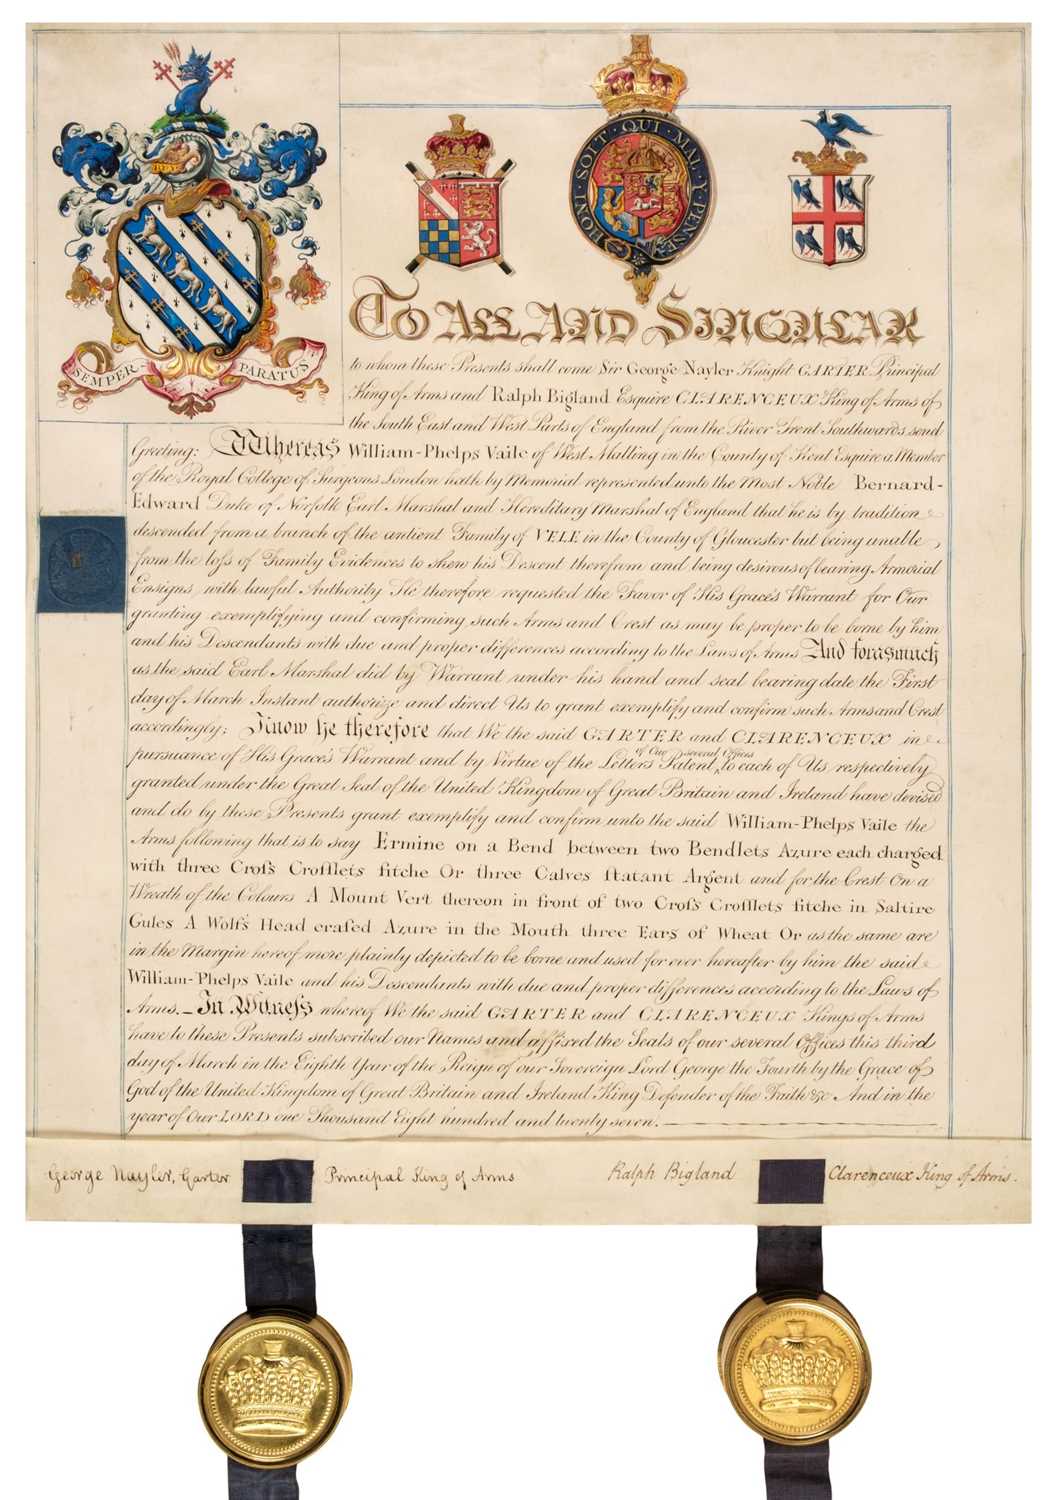 HONI · SOIT · QUI · MAL · Y · PENSE
SEMPER PARATUS
TO ALL AND SINGULAR
to whom these Presents shall come Sir George Nayler Knight GARTER Principal
King of Arms and Ralph Bigland Esquire CLARENCEUX King of Arms of
the South East and West Parts of England from the River Trent Southwards send
Greeting: Whereas William-Phelps Vaile of West Malling in the County of Kent Esquire a Member
of the Royal College of Surgeons London hath by Memorial represented unto the Most Noble Bernard-
Edward Duke of Norfolk Earl Marshal and Hereditary Marshal of England that he is by tradition
descended from a branch of the antient Family of VELE in the County of Gloucester but being unable
from the loss of Family Evidences to shew his Descent therefrom and being desirous of bearing Armorial
Ensigns with lawful Authority He therefore requested the Favor of His Grace's Warrant for Our
granting exemplifying and confirming such Arms and Crest as may be proper to be borne by him
and his Descendants with due and proper differences according to the Laws of Arms And forasmuch
as the said Earl Marshal did by Warrant under his hand and seal bearing date the First
day of March Instant authorize and direct Us to grant exemplify and confirm such Arms and Crest
accordingly; Know Ye therefore that We the said GARTER and CLARENCEUX in
pursuance of His Grace's Warrant and by Virtue of the Letters Patent of Our several Offices to each of Us respectively
granted under the Great Seal of the United Kingdom of Great Britain and Ireland have devised
and do by these Presents grant exemplify and confirm unto the said William-Phelps Vaile the
Arms following that is to say Ermine on a Bend between two Bendlets Azure each charged
with three Cross Crosslets fitche Or three Calves statant Argent and for the Crest On a
Wreath of the Colours A Mount Vert thereon in front of two Cross Crosslets fitche in Saltire
Gules A Wolf's Head erased Azure in the Mouth three Ears of Wheat Or as the same are
in the Margin hereof more plainly depicted to be borne and used for ever hereafter by him the said
William-Phelps Vaile and his Descendants with due and proper differences according to the Laws of
Arms. — In Witness whereof We the said GARTER and CLARENCEUX Kings of Arms
have to these Presents subscribed our Names and affixed the Seals of our several Offices this third
day of March in the Eighth Year of the Reign of our Sovereign Lord George the Fourth by the Grace of
God of the United Kingdom of Great Britain and Ireland King Defender of the Faith &c And in the
year of Our LORD one Thousand Eight hundred and twenty seven.
George Nayler, Garter Principal King of Arms Ralph Bigland Clarenceux King of Arms.